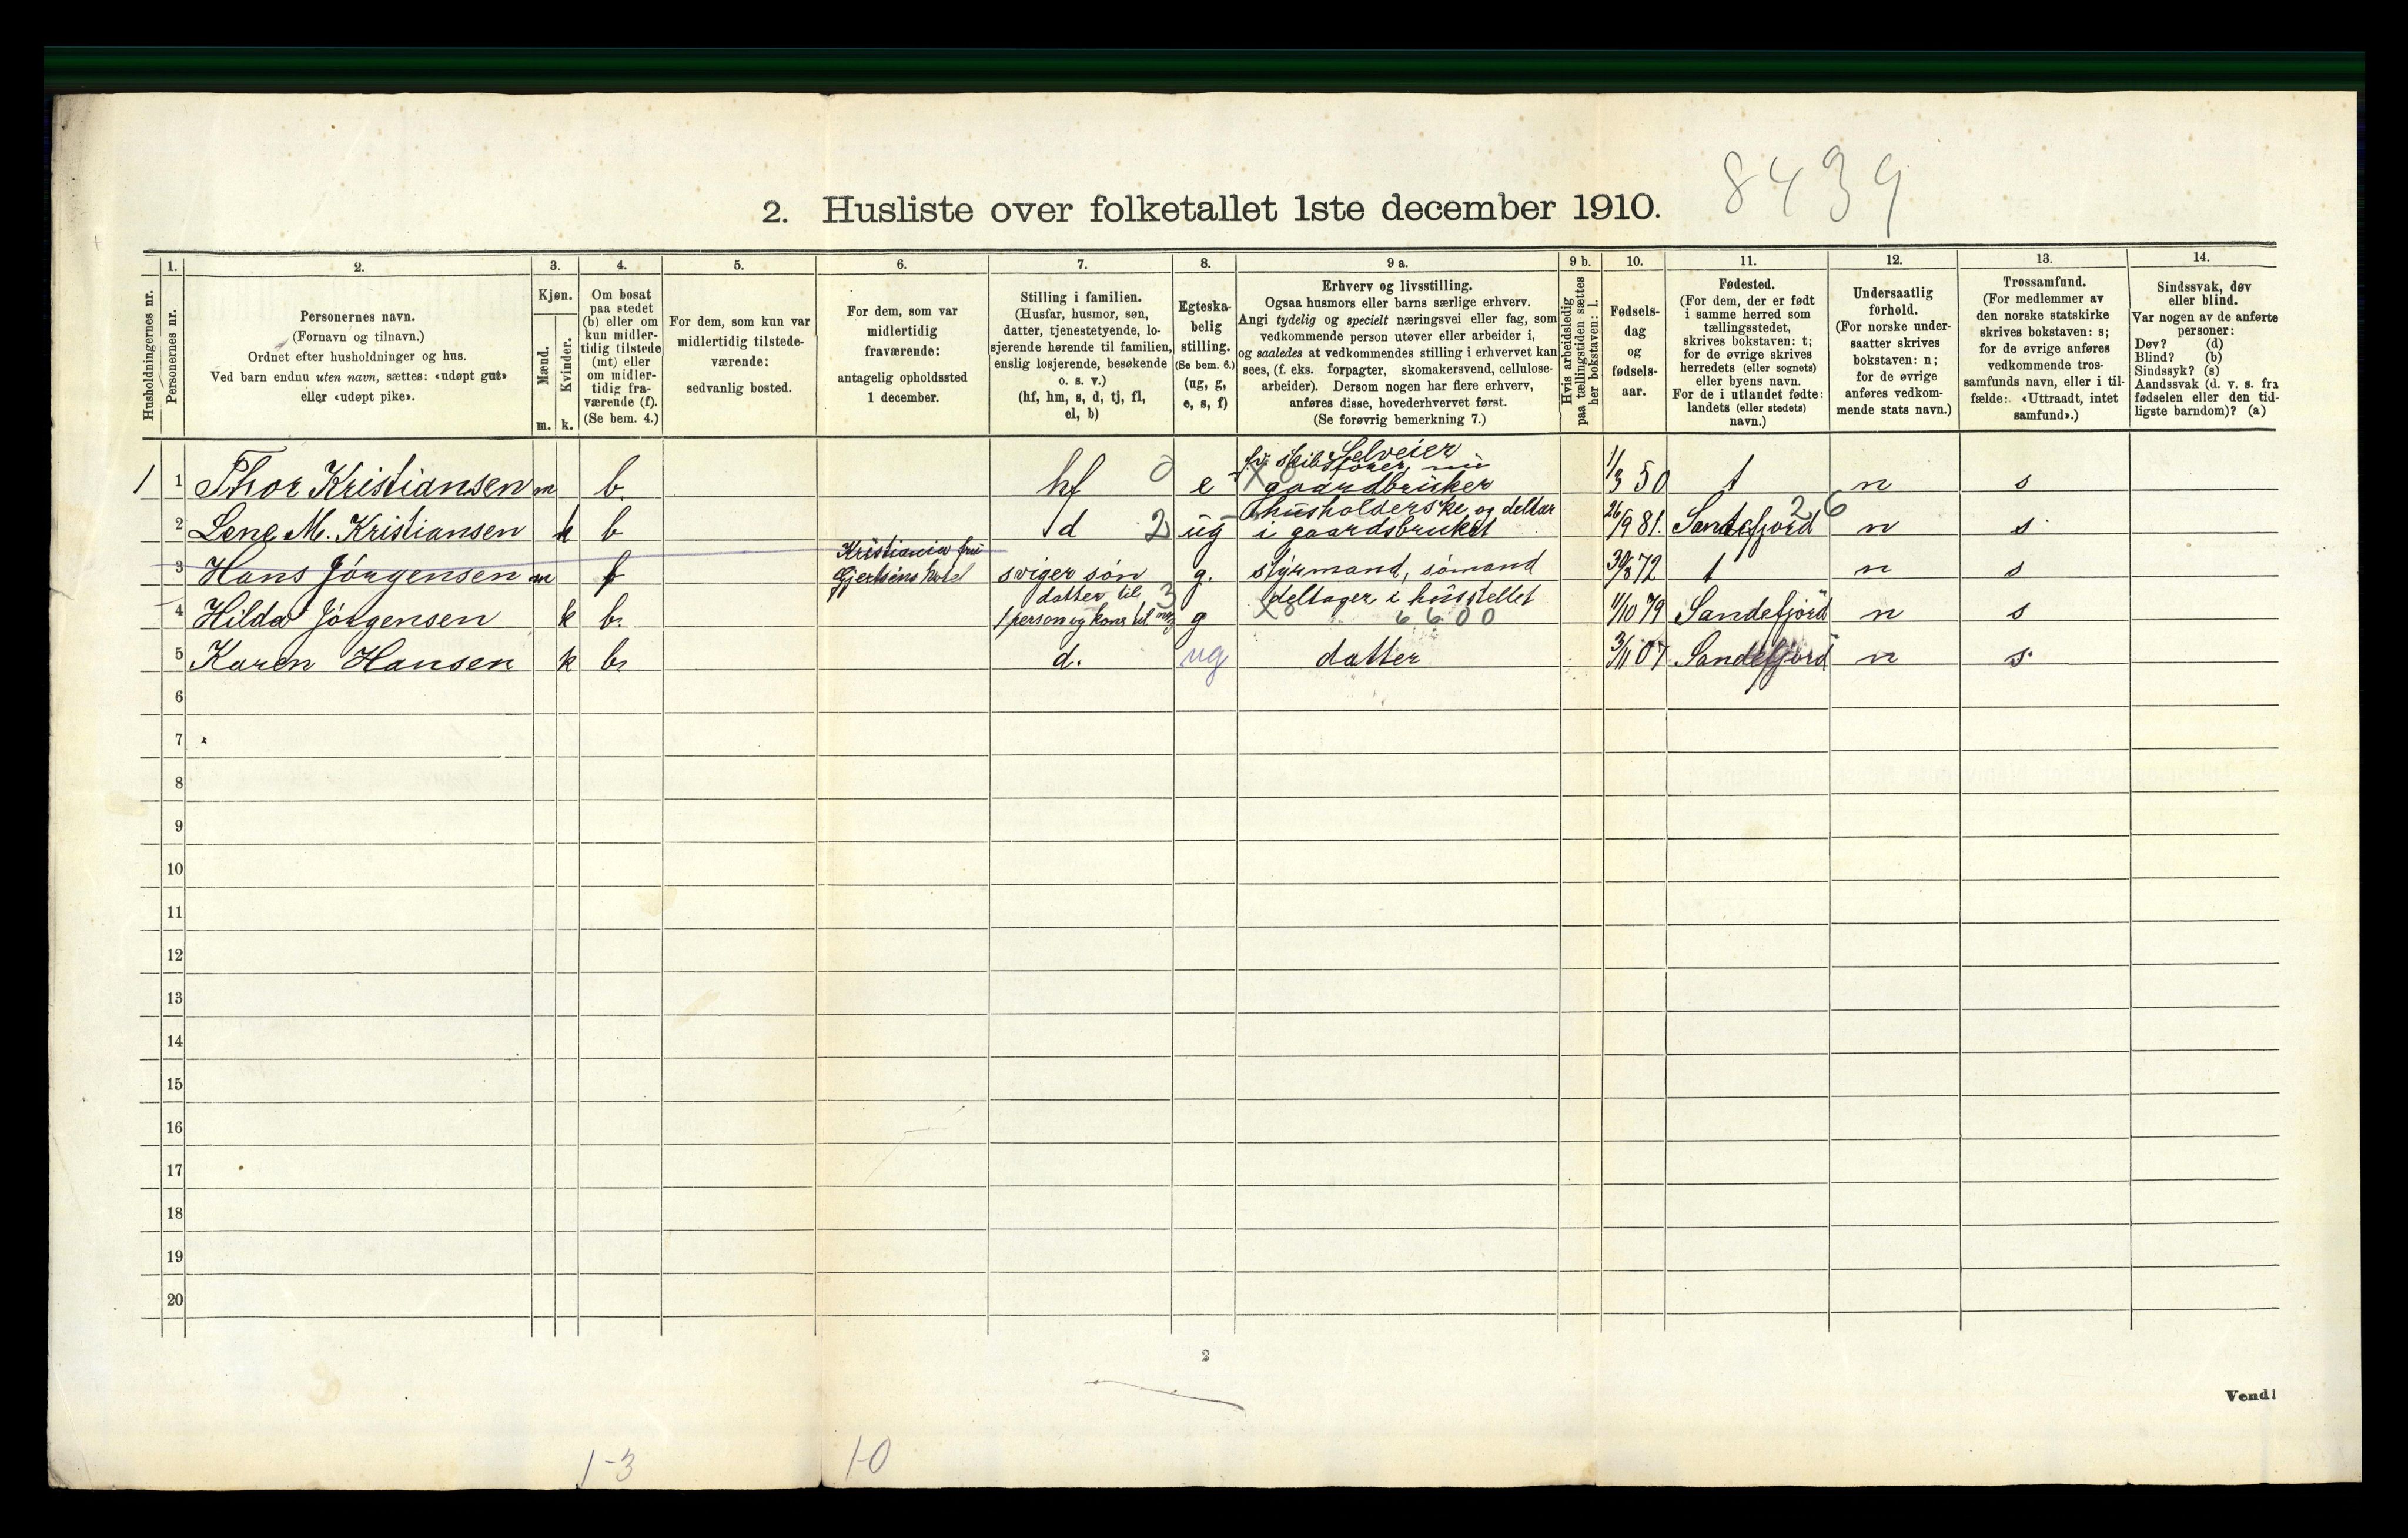 8439
2. Husliste over folketallet 1ste december 1910.
Husholdningernes nr.
1.
Personernes nr.
2.
Personernes navn.
(Fornavn og tilnavn.)
Ordnet efter husholdninger og hus.
Ved barn endnu uten navn, sættes: «udøpt gut»
eller «udøpt pike».
3.
Kjøn.
Mænd.
Kvinder.
m. k.
4.
Om bosat
paa stedet
(b) eller om
kun midler-
tidig tilstede
(mt) eller
om midler-
tidig fra-
værende (f).
(Se bem. 4.)
5.
For dem, som kun var
midlertidig tilstede-
værende:
sedvanlig bosted.
6.
For dem, som var
midlertidig
fraværende:
antagelig opholdssted
1 december.
7.
Stilling i familien.
(Husfar, husmor, søn,
datter, tjenestetyende, lo-
sjerende hørende til familien,
enslig losjerende, besøkende
o. s. v.)
(hf, hm, s, d, tj, fl,
el, b)
8.
Egteska-
belig
stilling.
(Se bem. 6.)
(ug, g,
e, s, f)
9 a.
Erhverv og livsstilling.
Ogsaa husmors eller barns særlige erhverv.
Angi tydelig og specielt næringsvei eller fag, som
vedkommende person utøver eller arbeider i,
og saaledes at vedkommendes stilling i erhvervet kan
sees, (f. eks. forpagter, skomakersvend, cellulose-
arbeider). Dersom nogen har flere erhverv,
anføres disse, hovederhvervet først.
(Se forøvrig bemerkning 7.)
9 b.
Hvis arbeidsledig
paa tællingstiden sættes
her bokstaven: l.
10.
Fødsels-
dag
og
fødsels-
aar.
11.
Fødested.
(For dem, der er født
i samme herred som
tællingsstedet,
skrives bokstaven: t;
for de øvrige skrives
herredets (eller sognets)
eller byens navn.
For de i utlandet fødte:
landets (eller stedets)
navn.)
12.
Undersaatlig
forhold.
(For norske under-
saatter skrives
bokstaven: n;
for de øvrige
anføres vedkom-
mende stats navn.)
13.
Trossamfund.
(For medlemmer av
den norske statskirke
skrives bokstaven: s;
for de øvrige anføres
vedkommende tros-
samfunds navn, eller i til-
fælde: «Uttraadt, intet
samfund».)
14.
Sindssvak, døv
eller blind.
Var nogen av de anførte
personer:
Døv? (d)
Blind? (b)
Sindssyk? (s)
Aandssvak (d. v. s. fra
fødselen eller den tid-
ligste barndom)? (a)
Selveier
fv. skibsfører, nu
1 1 Thor Kristiansen m b. hf 0 e X gaardbruker 1/3 50 t n s
husholderske og deltar 26
2 Lene M. Kristiansen k b d 2 ug i gaardsbruket 26/9 81. Sandefjord n s
Kristiania
3 Hans Jörgensen m f Gjertsens hotel sviger sön g. styrmand, sömand 30/8 72 t n s
datter til 3 deltager i husstellet
4 Hilda Jörgensen k b. 1 person og kone til g X 6600 11/10 79 Sandefjord n s
5 Karen Hansen k b. d. ug datter 3/11 07 Sandefjord n s
6
7
8
9
10
11
12
13
14
15
16
17
18
19
20
2
Vend!
1-3
1-0